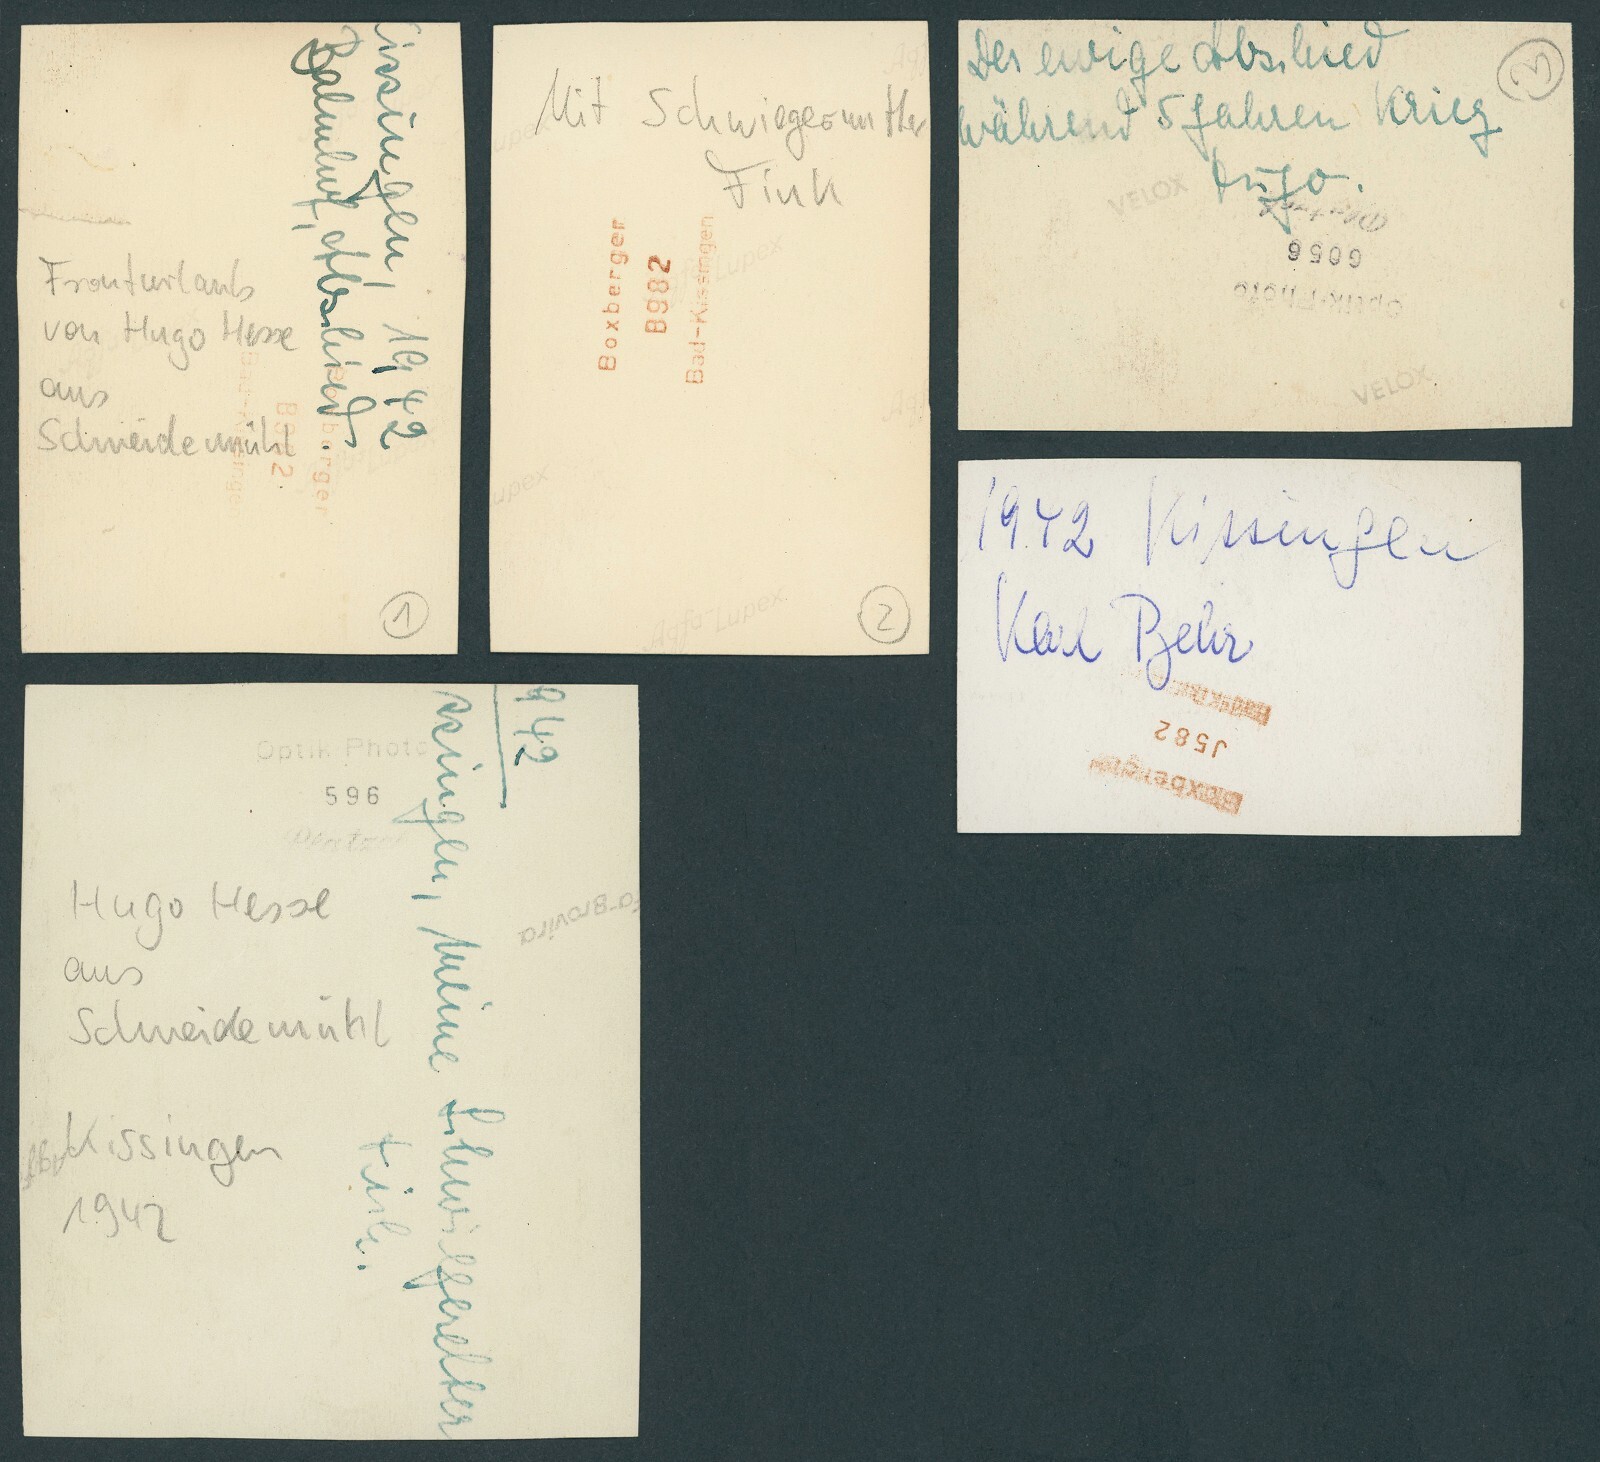 Kissingen, 1942
Bahnhof, Abschied.
Fronturlaub
von Hugo Hesse
aus
Schneidemühl
Boxberger
B982
Bad-Kissingen
1
Mit Schwiegermutter
Fink
Boxberger
B982
Bad-Kissingen
Agfa-Lupex
Lupex
Agfa-Lupex
2
Der ewige Abschied
während 5 Jahren Krieg
Hugo.
3
VELOX
6056
Optik-Photo
VELOX
1942 Kissingen
Karl Behr
Bad-Kissingen
J582
Boxberger
1942
ssingen, meine Schwiegereltern
Fink.
Optik Photo
596
Hugo Hesse
aus
Schneidemühl
Kissingen
1942